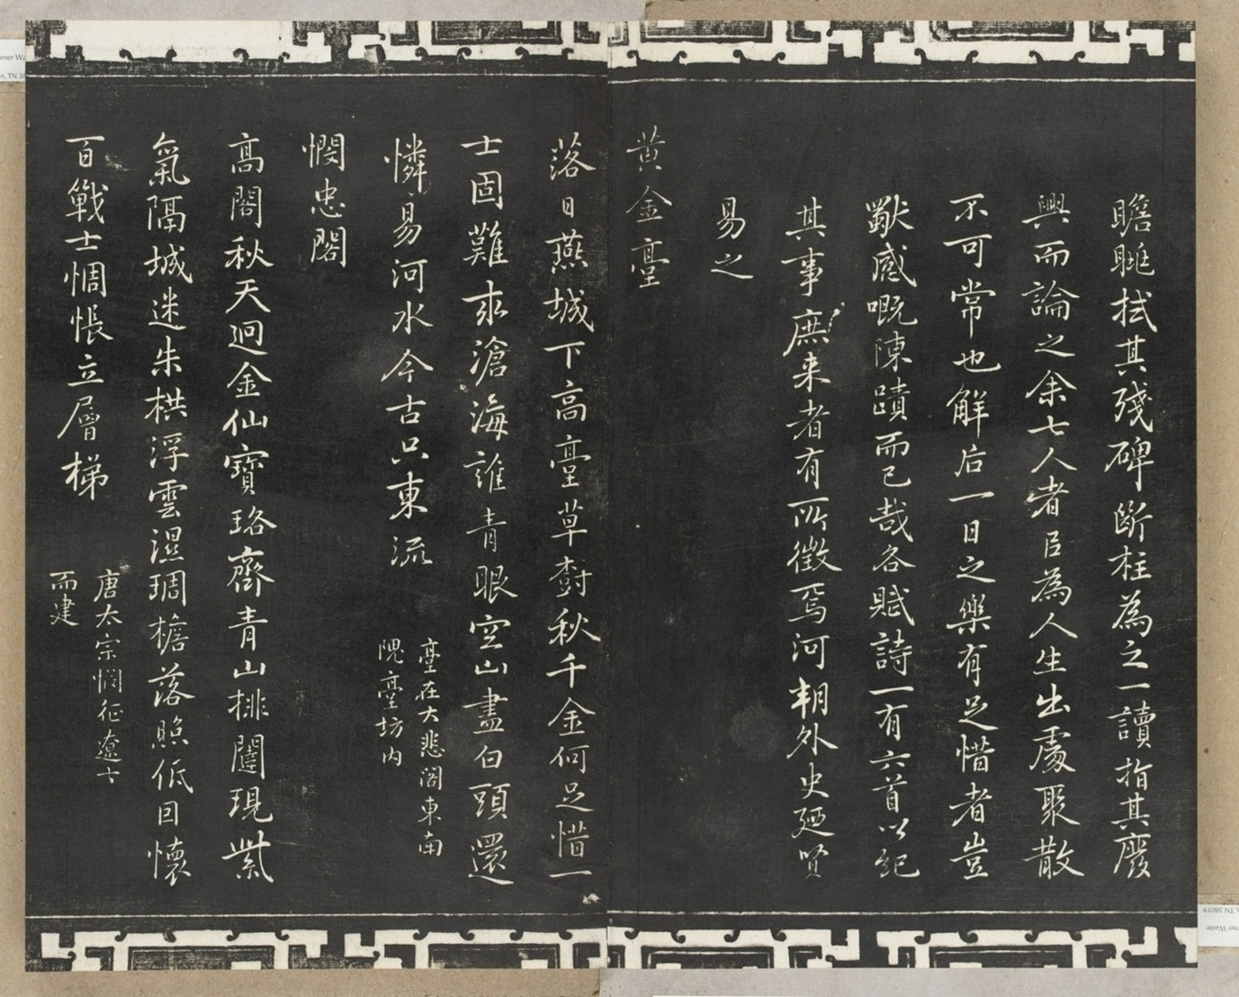 瞻眺拭其殘碑斷柱為之一讀指其廢
興而論之余七人者㠯為人生出處聚散
不可常也解后一日之樂有足惜者豈
獸感嘅陳蹟而已哉各賦詩一有六首以紀
其事庶来者有所徵焉河朔外史廼賢
易之
黄金臺
落日燕城下高臺草樹秋千金何足惜一
士固難求滄海誰青眼空山盡白頭還
憐易河水今古只東流
臺在大悲閣東南
隗臺坊内
憫忠閣
高閣秋天迥金仙寶珞齋青山排闥現紫
氣隔城迷朱栱浮雲濕琱檐落照低因懷
百戰士惆悵立層梯
唐太宗憫征遼士
而建